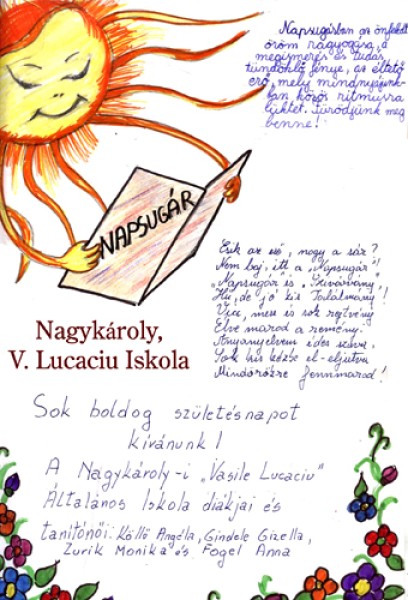 Napsugárban az önfeledt
öröm ragyogása, a
megismerés és tudás
tündöklő fénye, az éltető
erő, mely mindnyájunk-
ban közös ritmusra
lüktet. Fürödjünk meg
benne!
NAPSUGÁR
Esik az eső, nagy a sár?
Nem baj, itt a „Napsugár"!
„Napsugár és „Szivárvány",
Hű, de jó kis Találmány!
Vicc, mese is sok rejtvény
Elve marad a remény.
Anyanyelvem édes szava,
Sok kis kézbe el-eljutva
Mindörökre fennmarad!
Nagykároly,
V. Lucaciu Iskola
Sok boldog születésnapot
kívánunk!
A Nagykároly-i „Vasile Lucaciu"
Általános Iskola diákjai és
tanítónői: Köllő Angéla, Gindele Gizella,
Zurik Monika és Fogel Anna